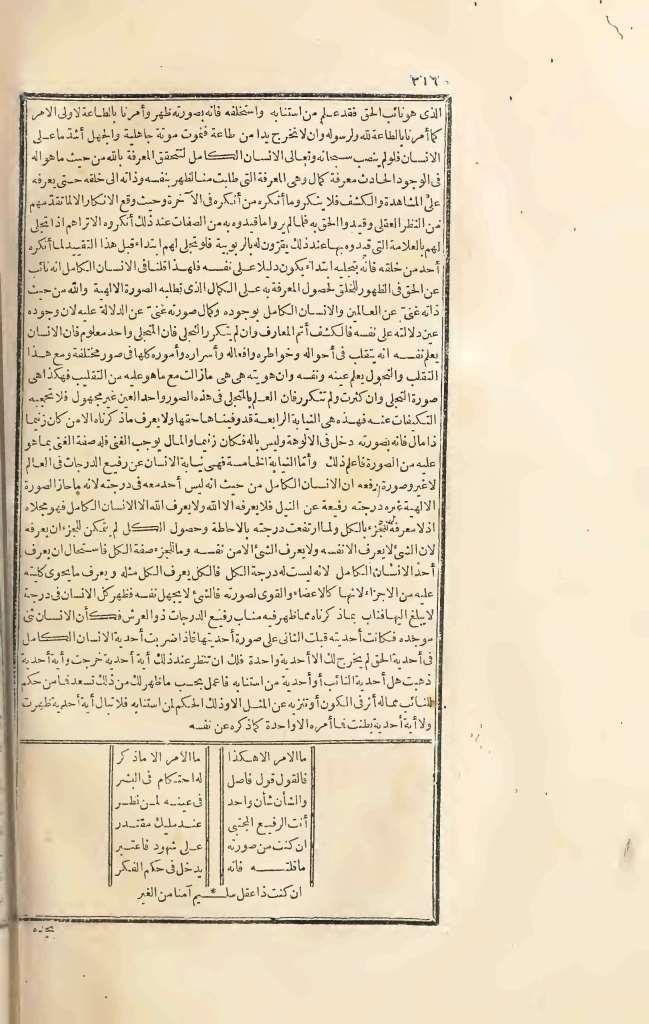 ٣١٦
الذى هو نائب الحق فقد علم من استنابه واستخلفه فانه بصورته ظهر وأمرنا بالطاعة لاولى الامر
كما أمرنا بالطاعة لله ولرسوله وان لا نخرج يدا من طاعة فنموت موتة جاهلية والجهل أشد ما على
الانسان فلو لم ينصب سبحانه وتعالى الانسان الكامل لتتحقق المعرفة بالله من حيث ما هو اله
فى الوجود الحادث معرفة كمال وهى المعرفة التى طلبت منا لظهر بنفسه وذاته الى خلقه حتى يعرفه
على المشاهدة والكشف فلا ينكر وما أنكره من أنكره فى الآخرة وحث وقع الانكار الا لما تقدمهم
من النظر العقلى وقيدوا الحق به فلما لم يروا ما قيدوه به من الصفات عند ذلك أنكروه الا تراهم اذا تجلى
لهم بالعلامة التى قيدوه بها عند ذلك يقرّون له بالربوبية فلو تجلى لهم ابتداء قبل هذا التقييد لما أنكره
أحد من خلقه فانه بتجليه ابتداء يكون دليلا على نفسه فلهذا قلنا فى الانسان الكامل انه نائب
عن الحق فى الظهور للخلق لحصول المعرفة به على الكمال الذى تطلبه الصورة الالهية والله من حيث
ذاته غنىّ عن العالمين والانسان الكامل بوجوده وكمال صورته غنىّ عن الدلالة عليه لان وجوده
عين دلالته على نفسه فالكشف أتم المعارف وان لم يتكرر التجلى فان المتجلى واحد معلوم فان الانسان
يعلم نفسه انه يتقلب فى أحواله وخواطره وافعاله وأسراره وأموره كلها فى صور مختلفة ومع هذا
التقلب والتحول يعلم عينه ونفسه وان هويته هى هى ما زالت مع ما هو عليه من التقليب فهكذا هى
صورة التجلى وان كثرت ولم تتكرر فان العلم بالمتجلى فى هذه الصور واحد العين غير مجهول فلا تحجبه
التكيفات عنه فهذه هى النيابة الرابعة قد وفيناها حقها ولا يعرف ما ذكرناه الا من كان زنيما
ذا مال فانه بصورته دخل فى الالوهة وليس باله فكان زنيما والمال يوجب الغنى فله صفة الغنى بما هو
عليه من الصورة فاعلم ذلك وأمّا النيابة الخامسة فهى نيابة الانسان عن رفيع الدرجات فى العالم
لا غير وصورة رفعه ان الانسان الكامل من حيث انه ليس أحد معه فى درجته لانه ما حاز الصورة
الالهية غيره درجته رفيعة عن النيل فلا يعرفه الا الله ولا يعرف الله الا الانسان الكامل فهو مجلاه
اذ لا معرفة للجزء بالكل ولما ارتفعت درجته بالاحاطة وحصول الكل لم يتمكن للجزء ان يعرفه
لان الشئ لا يعرف الا نفسه ولا يعرف الشئ الا من نفسه وما للجزء صفة الكل فاستحال ان يعرف
أحد الانسان الكامل لانه ليست له درجة الكل فالكل يعرف الكل مثله ويعرف ما يحوى كليته
عليه من الاجزاء لانها كالاعضاء والقوى لصورته فالشئ لا يجهل نفسه فظهر كل الانسان فى درجة
لا يبلغ اليها فناب بما ذكرناه مما ظهر فيه مناب رفيع الدرجات ذو العرش فكأن الانسان ثنى
موجده فكانت أحديته قبلت الثانى على صورة أحديتها فاذا ضربت أحدية الانسان الكامل
فى أحدية الحق لم يخرج لك الا أحدية واحدة فلك ان تنظر عند ذلك أية أحدية خرجت وأية أحدية
ذهبت هل أحدية النائب أو أحدية من استنابه فاعمل بحسب ما ظهر لك من ذلك تسعد فما من حكم
للنائب مما له أثر فى الكون أو تنزيه عن المثل الا وذلك الحكم لمن استنابه فلا تبال أية أحدية ظهرت
ولا أية أحدية بطنت فما أمره الا واحدة كما ذكره عن نفسه
ما الامر الا هكذا ما الامر الا ما ذكر
فالقول قول فاصل له احتكام فى البشر
والشأن شأن واحد فى عينه لمن نظر
أنت الرفيع المجتبى عند مليك مقتدر
ان كنت من صورته على شهود فاعتبر
ما قلته فانه يدخل فى حكم الفكر
ان كنت ذا عقل سليم * آمنا من الغير